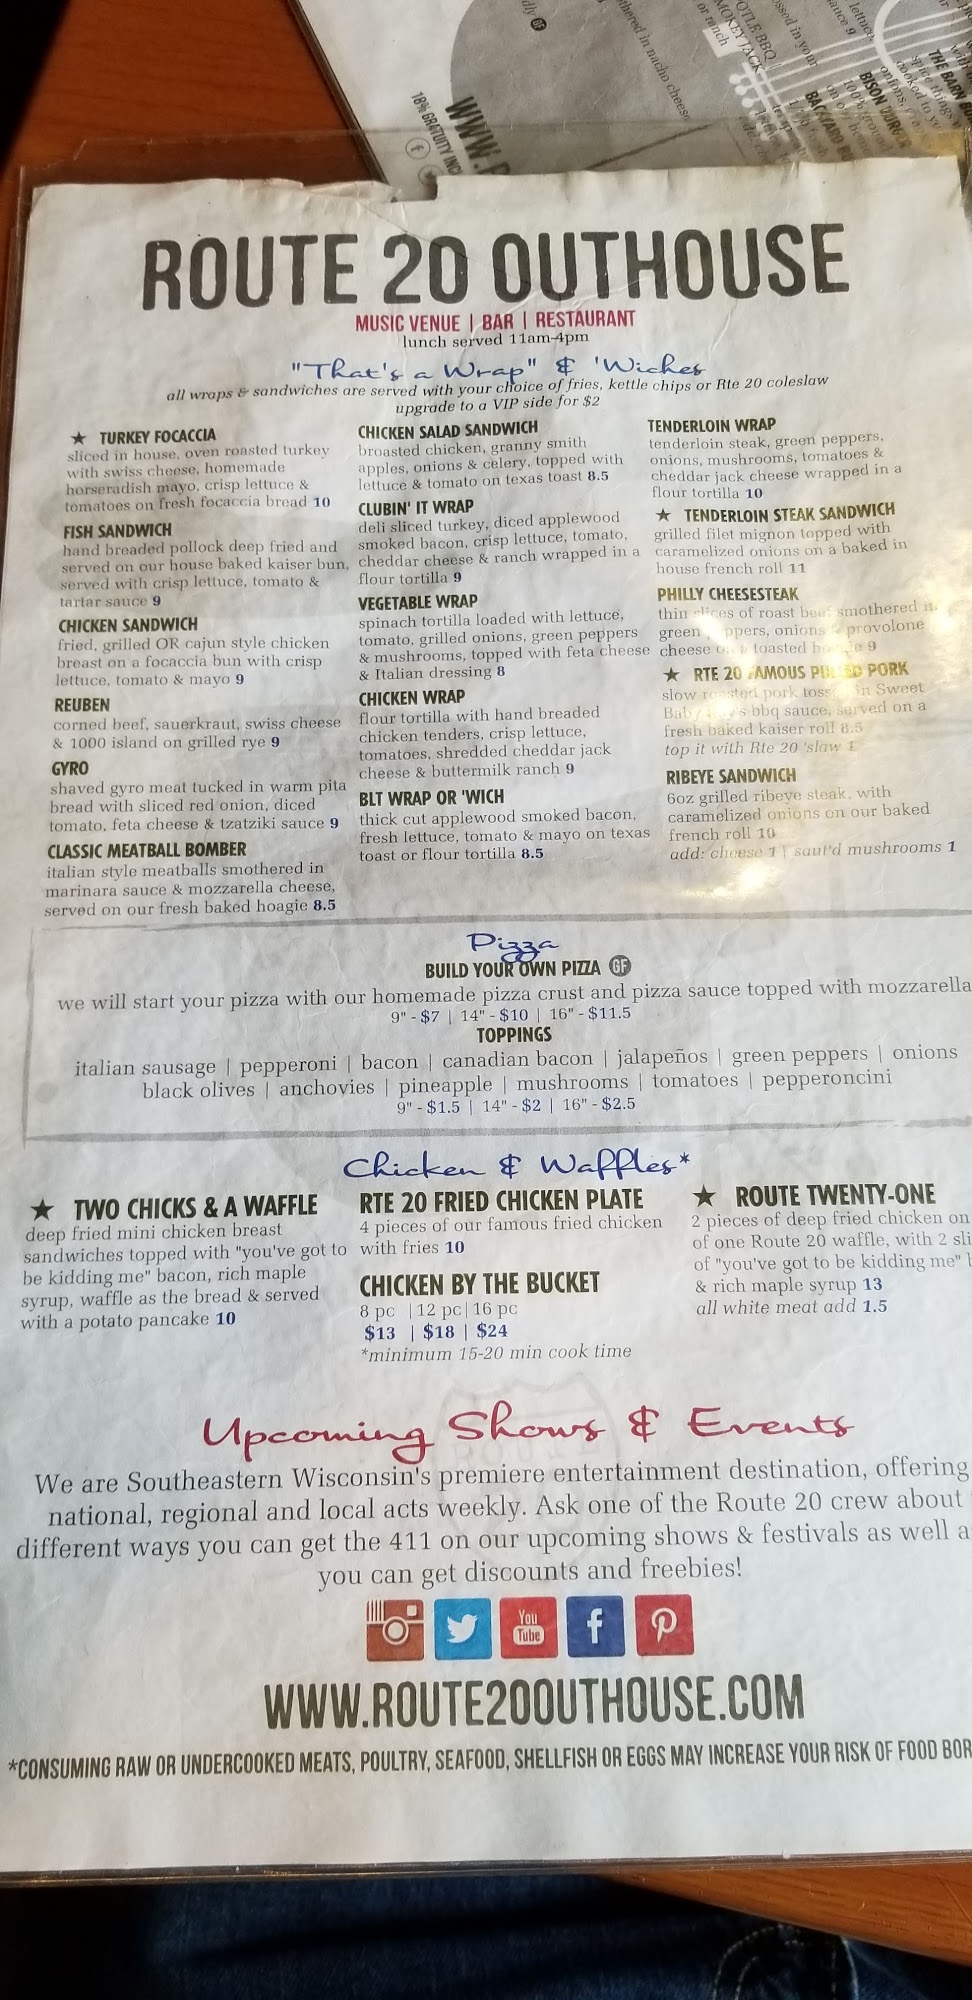 dly GF
thered in nacho cheese
WWW.
18% GRATUITY INC
OTLE BBQ
MOKEY JACK
or ranch
THE BARN BU
BISON BURGER
BACKYARD
ROUTE 20 OUTHOUSE
MUSIC VENUE | BAR | RESTAURANT
lunch served 11am-4pm
"That's a Wrap" & 'Wiches
all wraps & sandwiches are served with your choice of fries, kettle chips or Rte 20 coleslaw
upgrade to a VIP side for $2
★ TURKEY FOCACCIA
sliced in house, oven roasted turkey
with swiss cheese, homemade
horseradish mayo, crisp lettuce &
tomatoes on fresh focaccia bread 10
FISH SANDWICH
hand breaded pollock deep fried and
served on our house baked kaiser bun,
served with crisp lettuce, tomato &
tartar sauce 9
CHICKEN SANDWICH
fried, grilled OR cajun style chicken
breast on a focaccia bun with crisp
lettuce, tomato & mayo 9
REUBEN
corned beef, sauerkraut, swiss cheese
& 1000 island on grilled rye 9
GYRO
shaved gyro meat tucked in warm pita
bread with sliced red onion, diced
tomato, feta cheese & tzatziki sauce 9
CLASSIC MEATBALL BOMBER
italian style meatballs smothered in
marinara sauce & mozzarella cheese,
served on our fresh baked hoagie 8.5
CHICKEN SALAD SANDWICH
broasted chicken, granny smith
apples, onions & celery, topped with
lettuce & tomato on texas toast 8.5
CLUBIN' IT WRAP
deli sliced turkey, diced applewood
smoked bacon, crisp lettuce, tomato,
cheddar cheese & ranch wrapped in a
flour tortilla 9
VEGETABLE WRAP
spinach tortilla loaded with lettuce,
tomato, grilled onions, green peppers
& mushrooms, topped with feta cheese
& Italian dressing 8
CHICKEN WRAP
flour tortilla with hand breaded
chicken tenders, crisp lettuce,
tomatoes, shredded cheddar jack
cheese & buttermilk ranch 9
BLT WRAP OR 'WICH
thick cut applewood smoked bacon,
fresh lettuce, tomato & mayo on texas
toast or flour tortilla 8.5
TENDERLOIN WRAP
tenderloin steak, green peppers,
onions, mushrooms, tomatoes &
cheddar jack cheese wrapped in a
flour tortilla 10
★ TENDERLOIN STEAK SANDWICH
grilled filet mignon topped with
caramelized onions on a baked in
house french roll 11
PHILLY CHEESESTEAK
thin slices of roast beef smothered in
green peppers, onions & provolone
cheese on a toasted hoagie 9
★ RTE 20 FAMOUS PULLED PORK
slow roasted pork tossed in Sweet
Baby Ray's bbq sauce, served on a
fresh baked kaiser roll 8.5
top it with Rte 20 'slaw 1
RIBEYE SANDWICH
6oz grilled ribeye steak, with
caramelized onions on our baked
french roll 10
add: cheese 1 | saut'd mushrooms 1
Pizza
BUILD YOUR OWN PIZZA GF
we will start your pizza with our homemade pizza crust and pizza sauce topped with mozzarella
9" - $7 | 14" - $10 | 16" - $11.5
TOPPINGS
italian sausage | pepperoni | bacon | canadian bacon | jalapeños | green peppers | onions
black olives | anchovies | pineapple | mushrooms | tomatoes | pepperoncini
9" - $1.5 | 14" - $2 | 16" - $2.5
Chicken & Waffles*
★ TWO CHICKS & A WAFFLE
deep fried mini chicken breast
sandwiches topped with "you've got to
be kidding me" bacon, rich maple
syrup, waffle as the bread & served
with a potato pancake 10
RTE 20 FRIED CHICKEN PLATE
4 pieces of our famous fried chicken
with fries 10
CHICKEN BY THE BUCKET
8 pc | 12 pc | 16 pc
$13 | $18 | $24
*minimum 15-20 min cook time
★ ROUTE TWENTY-ONE
2 pieces of deep fried chicken on
of one Route 20 waffle, with 2 sli
of "you've got to be kidding me"
& rich maple syrup 13
all white meat add 1.5
Upcoming Shows & Events
We are Southeastern Wisconsin's premiere entertainment destination, offering
national, regional and local acts weekly. Ask one of the Route 20 crew about
different ways you can get the 411 on our upcoming shows & festivals as well a
you can get discounts and freebies!
You
Tube
WWW.ROUTE20OUTHOUSE.COM
*CONSUMING RAW OR UNDERCOOKED MEATS, POULTRY, SEAFOOD, SHELLFISH OR EGGS MAY INCREASE YOUR RISK OF FOOD BOR